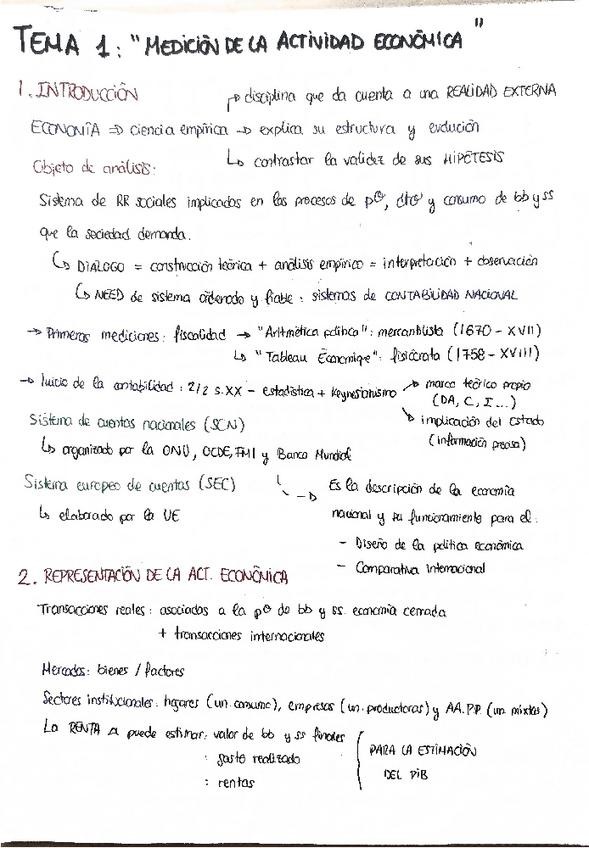 TEMA 1: "MEDICIÓN DE LA ACTIVIDAD ECONÓMICA"
1. INTRODUCCIÓN
↱ disciplina que da cuenta a una REALIDAD EXTERNA
ECONOMÍA ⇒ ciencia empírica → explica su estructura y evolución
↳ contrastar la validez de sus HIPÓTESIS
Objeto de análisis:
Sistema de RR sociales implicados en los procesos de pº, dtoº y consumo de bb y ss
que la sociedad demanda.
↳ DIÁLOGO = construcción teórica + análisis empírico = interpretación + observación
↳ NEED de sistema ordenado y fiable : sistemas de CONTABILIDAD NACIONAL
→ Primeras mediciones: fiscalidad → "Aritmética política": mercantilista (1670 - XVII)
↳ "Tableau Economique": fisiócrata (1758 - XVIII)
→ Inicio de la contabilidad : 2/2 s.XX - estadística + Keynesianismo
↗ marco teórico propio
(DA, C, I...)
↘ implicación del estado
(información precisa)
Sistema de cuentas nacionales (SCN)
↳ organizado por la ONU, OCDE, FMI y Banco Mundial
Sistema europeo de cuentas (SEC)
↳ elaborado por la UE
→ Es la descripción de la economía
nacional y su funcionamiento para el:
- Diseño de la política económica
- Comparativa internacional
2. REPRESENTACIÓN DE LA ACT. ECONÓMICA
Transacciones reales: asociadas a la pº de bb y ss. economía cerrada
+ transacciones internacionales
Mercados: bienes / factores
Sectores institucionales: hogares (un. consumo), empresas (un. productoras) y AA.PP (un. mixtas)
La RENTA puede estimar: valor de bb y ss finales
: gasto realizado
: rentas
PARA LA ESTIMACIÓN
DEL PIB